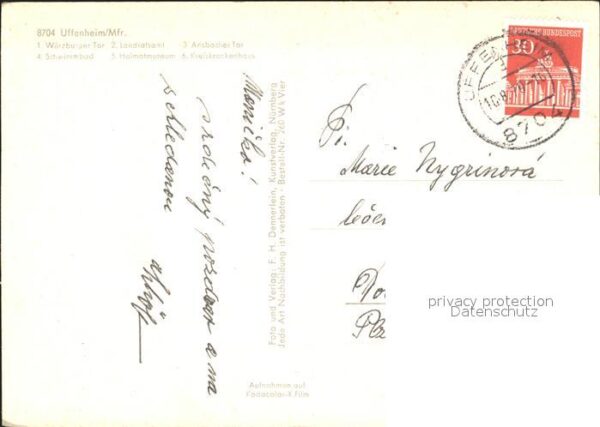 8704 Uffenheim/Mfr.
1 Würzburger Tor 2 Landratsamt 3 Ansbacher Tor
4 Schwimmbad 5 Heimatmuseum 6 Kreiskrankenhaus
Moničko!
srdečný pozdrav a na
shledanou
Foto und Verlag: F. H. Dennerlein, Kunstverlag, Nürnberg
Jede Art Nachbildung ist verboten · Bestell-Nr. 260 Wk Vier
Aufnahme auf
Kodacolor-X Film
DEUTSCHE BUNDESPOST
30
UFFENHEIM
8704
Marie Nygrinová
privacy protection
Datenschutz